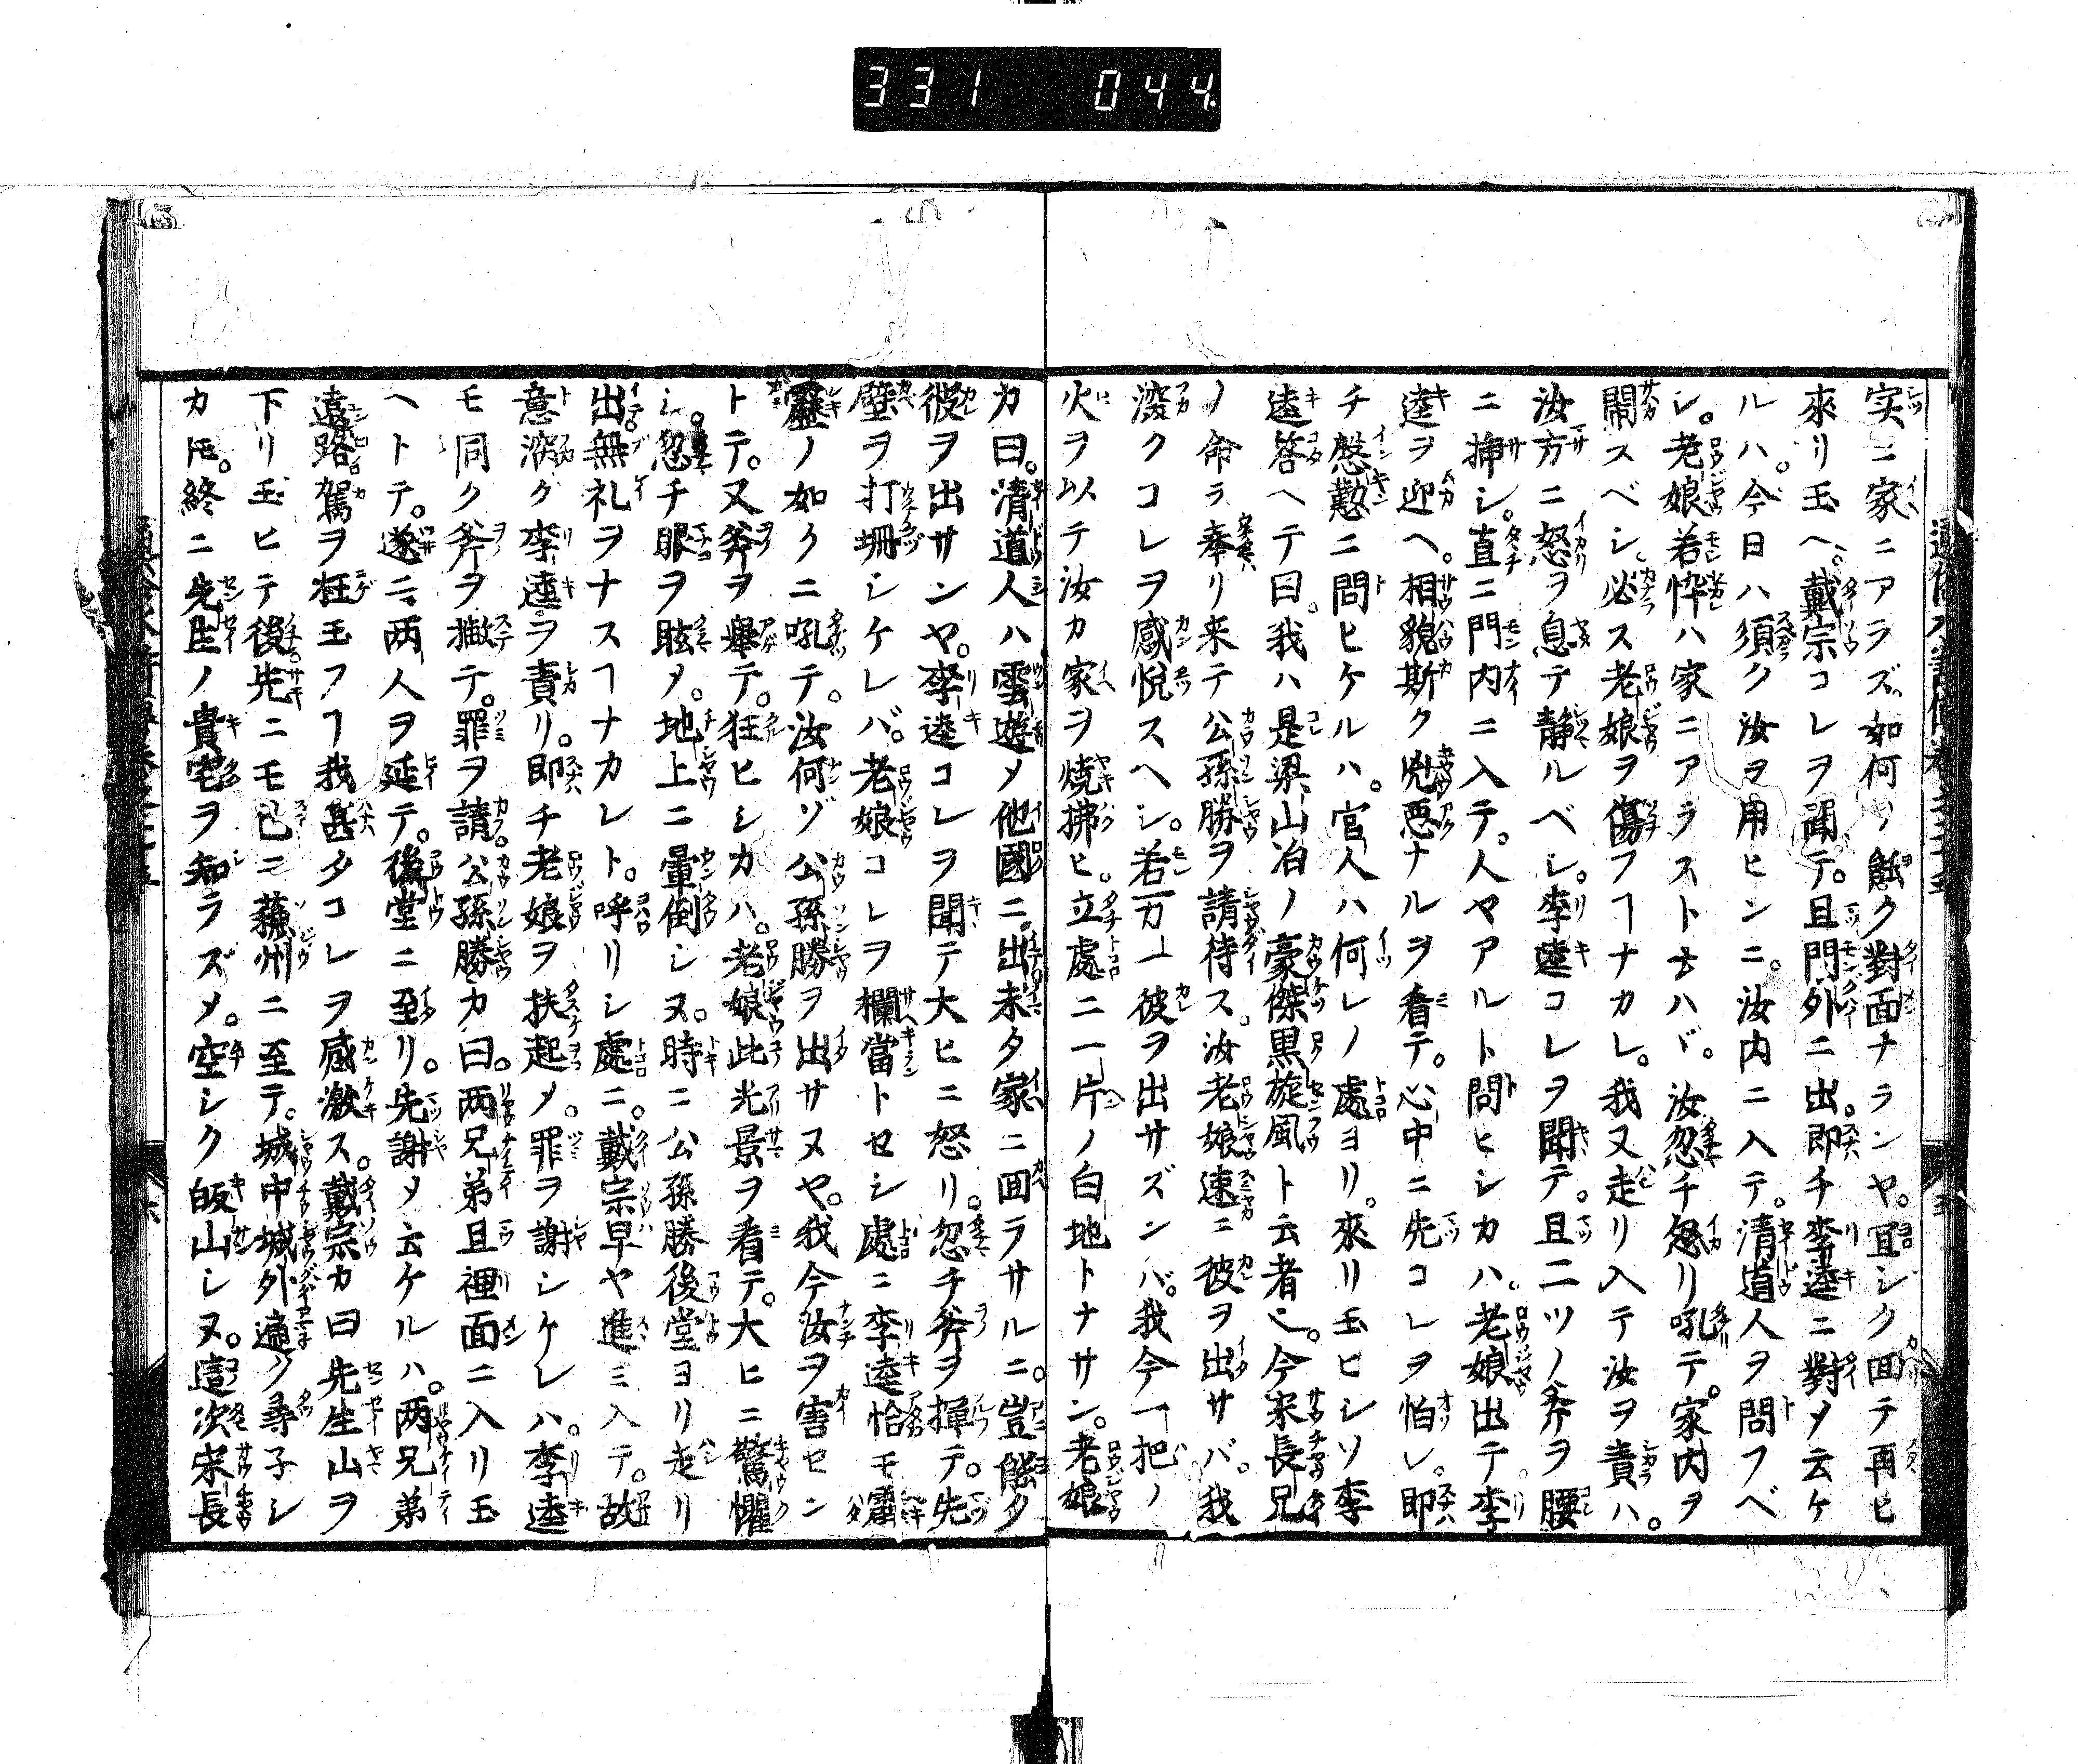 331 044
实ニ家ニアラズ如何ソ能ク對面ナランヤ。宜シク回テ再ヒ
來リ玉ヘ。戴宗コレヲ聞テ。且門外ニ出。即チ李逵ニ對メ云ケ
ルハ。今日ハ須ク汝ヲ用ヒンニ。汝内ニ入テ。清道人ヲ問フベ
シ。老娘若忰ハ家ニアラスト云ハヾ。汝忽チ怒リ吼テ。家内ヲ
閙スベシ。必ス老娘ヲ傷フヿナカレ。我又走リ入テ汝ヲ責ハ。
汝方ニ怒ヲ息テ静ルベシ。李逵コレヲ聞テ。且二ツノ斧ヲ腰
ニ挿シ。直ニ門内ニ入テ。人ヤアルト問ヒシカハ。老娘出テ李
逵ヲ迎ヘ。相貌斯ク兇悪ナルヲ看テ。心中ニ先コレヲ怕レ。即
チ慇懃ニ問ヒケルハ。官人ハ何レノ處ヨリ。來リ玉ヒシソ李
逵答ヘテ曰。我ハ是梁山泊ノ豪傑黒旋風ト云者也。今宋長兄
ノ命ヲ奉リ来テ公孫勝ヲ請待ス。汝老娘速ニ彼ヲ出サバ。我
深クコレヲ感悦スヘシ。若万一彼ヲ出サズンバ。我今一把ノ
火ヲ以テ汝カ家ヲ焼拂ヒ。立處ニ一片ノ白地トナサン。老娘
カ曰。清道人ハ雲遊メ他國ニ。出未タ家ニ回ラサルニ。豈能タ
彼ヲ出サンヤ。李逵コレヲ聞テ大ヒニ怒リ。忽チ斧ヲ揮テ。先
壁ヲ打坍シケレバ。老娘コレヲ欄當トセシ處ニ李逵恰モ霹
靂ノ如クニ吼テ。汝何ゾ公孫勝ヲ出サヌヤ。我今汝ヲ害セン
トテ。又斧ヲ舉テ。狂ヒシカハ。老娘此光景ヲ看テ。大ヒニ驚懼
シ。忽チ眼ヲ眩メ。地上ニ暈倒シヌ。時ニ公孫勝後堂ヨリ走リ
出。無礼ヲナスヿナカレト。呼リシ處ニ。戴宗早ヤ進ミ入テ。故
意深ク李逵ヲ責リ。即チ老娘ヲ扶起メ。罪ヲ謝シケレハ。李逵
モ同ク斧ヲ撇テ。罪ヲ請。公孫勝カ曰。两兄弟且裡面ニ入リ玉
ヘトテ。遂ニ两人ヲ延テ。後堂ニ至リ。先謝メ云ケルハ。两兄弟
遠路駕ヲ枉玉フヿ我甚タコレヲ感激ス。戴宗カ曰先生山ヲ
下リ玉ヒテ後先ニモ已ニ薊州ニ至テ。城中城外遍ク尋子シ
カ𪜈。終ニ先生ノ貴宅ヲ知ラズメ。空シク皈山シヌ。這次宋長